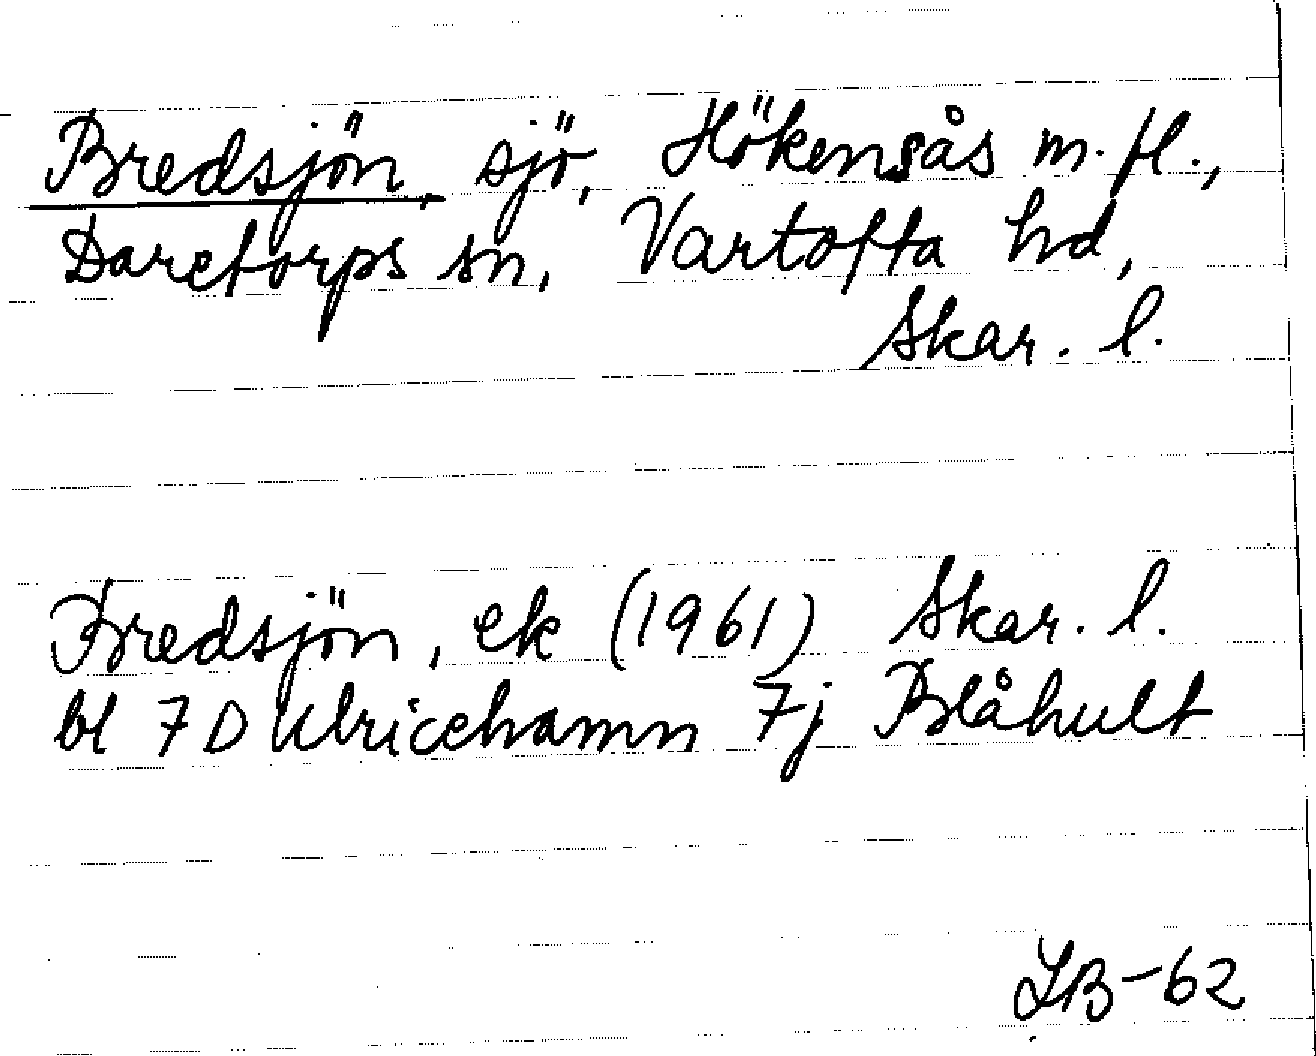 Bredsjön, sjö, Hökensås m. fl.,
Daretorps sn, Vartofta hd,
Skar. l.
Bredsjön, ek (1961) Skar. l.
bl 7D Ulricehamn 7j Blåhult
LB-62